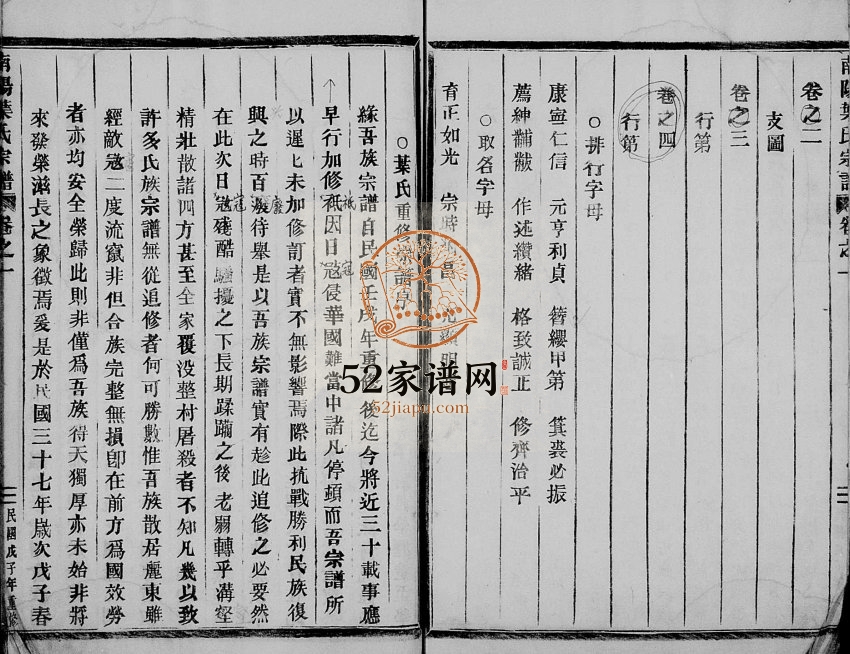 南陽葉氏宗譜 卷之一
卷之二
支圖
卷之三
行第
卷之四
行第
○排行字母
康寧仁信 元亨利貞 簪纓甲第 箕裘必振
薦紳黼黻 作述纘緒 格致誠正 修齊治平
○取名字母
育正如光 宗時
○葉氏重修宗譜序
緣吾族宗譜自民國壬戌年重修後迄今將近三十載事應
早行加修祇因日寇侵華國難當中諸凡停頓而吾宗譜所
以遲七未加修訂者實不無影響焉際此抗戰勝利民族復
興之時百廢待舉是以吾族宗譜實有趁此追修之必要然
在此次日寇殘酷騷擾之下長期蹂躪之後老弱轉乎溝壑
精壯散諸四方甚至全家覆没整村屠殺者不知凡幾以致
許多氏族宗譜無從追修者何可勝數惟吾族散居麗東雖
經敵寇二度流竄非但合族完整無損卽在前方爲國效勞
者亦均安全榮歸此則非僅爲吾族得天獨厚亦未始非將
來發榮滋長之象徵焉爰是於民國三十七年歲次戊子春
南陽葉氏宗譜 卷之一 民國戊子年重修
52家谱网
52jiapu.com